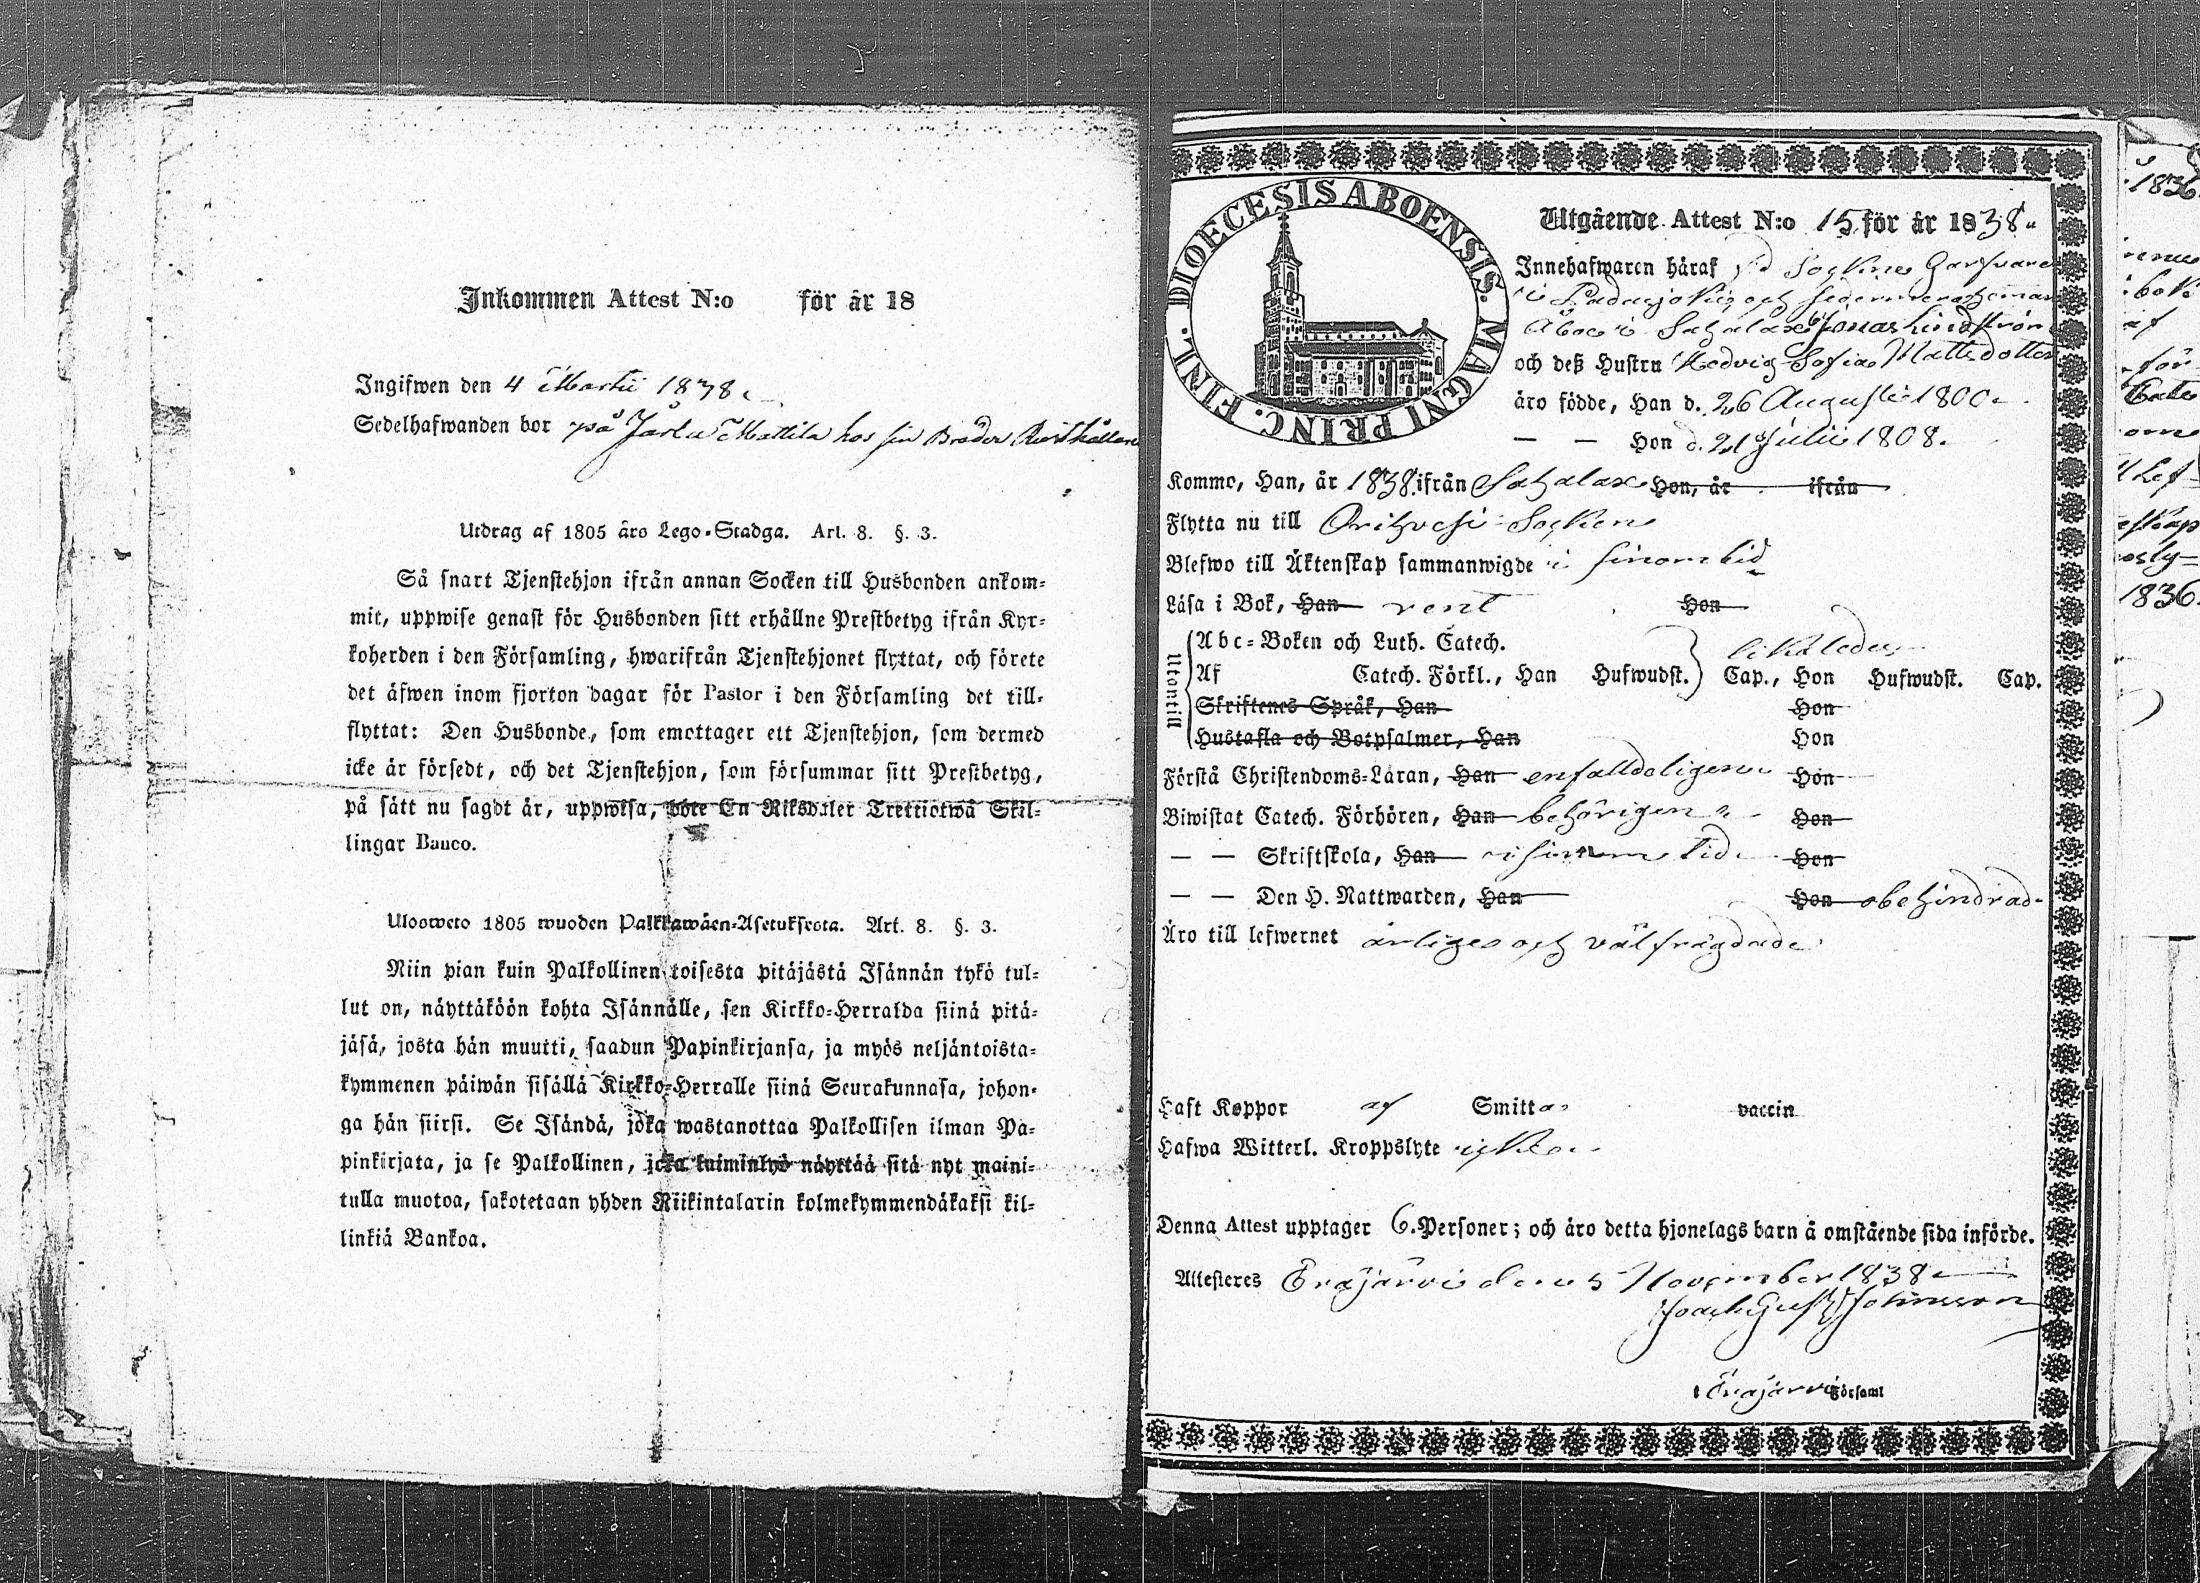 Inkommen Attest N:o för år 18
Ingifwen den 4 Martii 1838.
Sedelhafwanden bor på Jårlu Mattila hos sin Broder Rusthållare
Utdrag af 1805 års Lego-Stadga. Art. 8. §. 3.
Så snart Tjenstehjon ifrån annan Socken till Husbonden ankom-
mit, uppwise genast för Husbonden sitt erhållne Prestbetyg ifrån Kyr-
koherden i den Församling, hwarifrån Tjenstehjonet flyttat, och förete
det äfwen inom fjorton dagar för Pastor i den Församling det till-
flyttat: Den Husbonde, som emottager ett Tjenstehjon, som dermed
icke är försedt, och det Tjenstehjon, som försummar sitt Prestbetyg,
på sätt nu sagdt är, uppwisa, böte En Riksdaler Trettiotwå Skil-
lingar Banco.
Ulosweto 1805 wuoden Palkkawäen-Asetuksesta. Art. 8. §. 3.
Niin pian kuin Palkollinen toisesta pitäjästä Isännän tykö tul-
lut on, näyttäköön kohta Isännälle, sen Kirkko-Herralda siinä pitä-
jäsä, josta hän muutti, saadun Papinkirjansa, ja myös neljäntoista-
kymmenen päiwän sisällä Kirkko-Herralle siinä Seurakunnasa, johon-
ga hän siirsi. Se Isändä, joka wastanottaa Palkollisen ilman Pa-
pinkirjata, ja se Palkollinen, joka laiminlyö näyttää sitä nyt maini-
tulla muotoa, sakotetaan yhden Riikintalarin kolmekymmendäkaksi kil-
linkiä Bankoa.
DIOECESIS ABOENSIS. MAGNI PRINC. FINL.
Utgående Attest N:o 15 för år 1838.
Innehafwaren häraf Socknes
i och
i Sahalax Jonas Lindström
och deß Hustru Hedvig Sofia Mattsdotter
äro födde, Han d. 26 Augusti 1800.
— — Hon d. 21 Julii 1808.
Kommo, Han, år 1838 ifrån Sahalax Hon, år ifrån
Flytta nu till Orihvesi Socken
Blefwo till Äktenskap sammanwigde i sinom tid
Läsa i Bok, Han rent Hon
Utantill
Abc-Boken och Luth. Catech. likaledes
Af Catech. Förkl., Han Hufwudst. Cap., Hon Hufwudst. Cap.
Skriftenes Språk, Han Hon
Hustafla och Botpsalmer, Han Hon
Förstå Christendoms-Läran, Han enfalldeligen Hon
Biwistat Catech. Förhören, Han behörigen Hon
— — Skriftskola, Han i sinom tid Hon
— — Den H. Nattwarden, Han Hon obehindrad
Äro till lefwernet ärliga och välfrägdade
Haft Koppor af Smitta vaccin
Hafwa Witterl. Kroppslyte icke
Denna Attest upptager 6. Personer; och äro detta hjonelags barn å omstående sida införde.
Attesteres Eräjärvi den 5 November 1838
Joach. Gust. Johnsson
i Eräjärvi Församl
1836
för
1836.